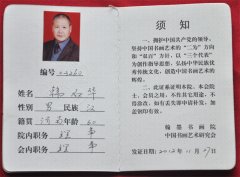 编号
姓名 韩 华
性别 男 民族 汉
籍贯 河 年龄 60
院内职务
会内职务
须知
一、拥护中国共产党的领导，
坚持中国书画艺术的“二为”方向
和“双百”方针，以“三个代表”
为创作指导思想，弘扬中华民族优
秀传统文化，创造中国书画艺术的
辉煌。
二、此证系证明本院、本会院
士、会员之用，不作其它用途，不
得涂改，如有丢失即申请补发，加
盖钢印有效。
翰墨书画院
中国书画艺术研究会
发证日期：2012年11月27日